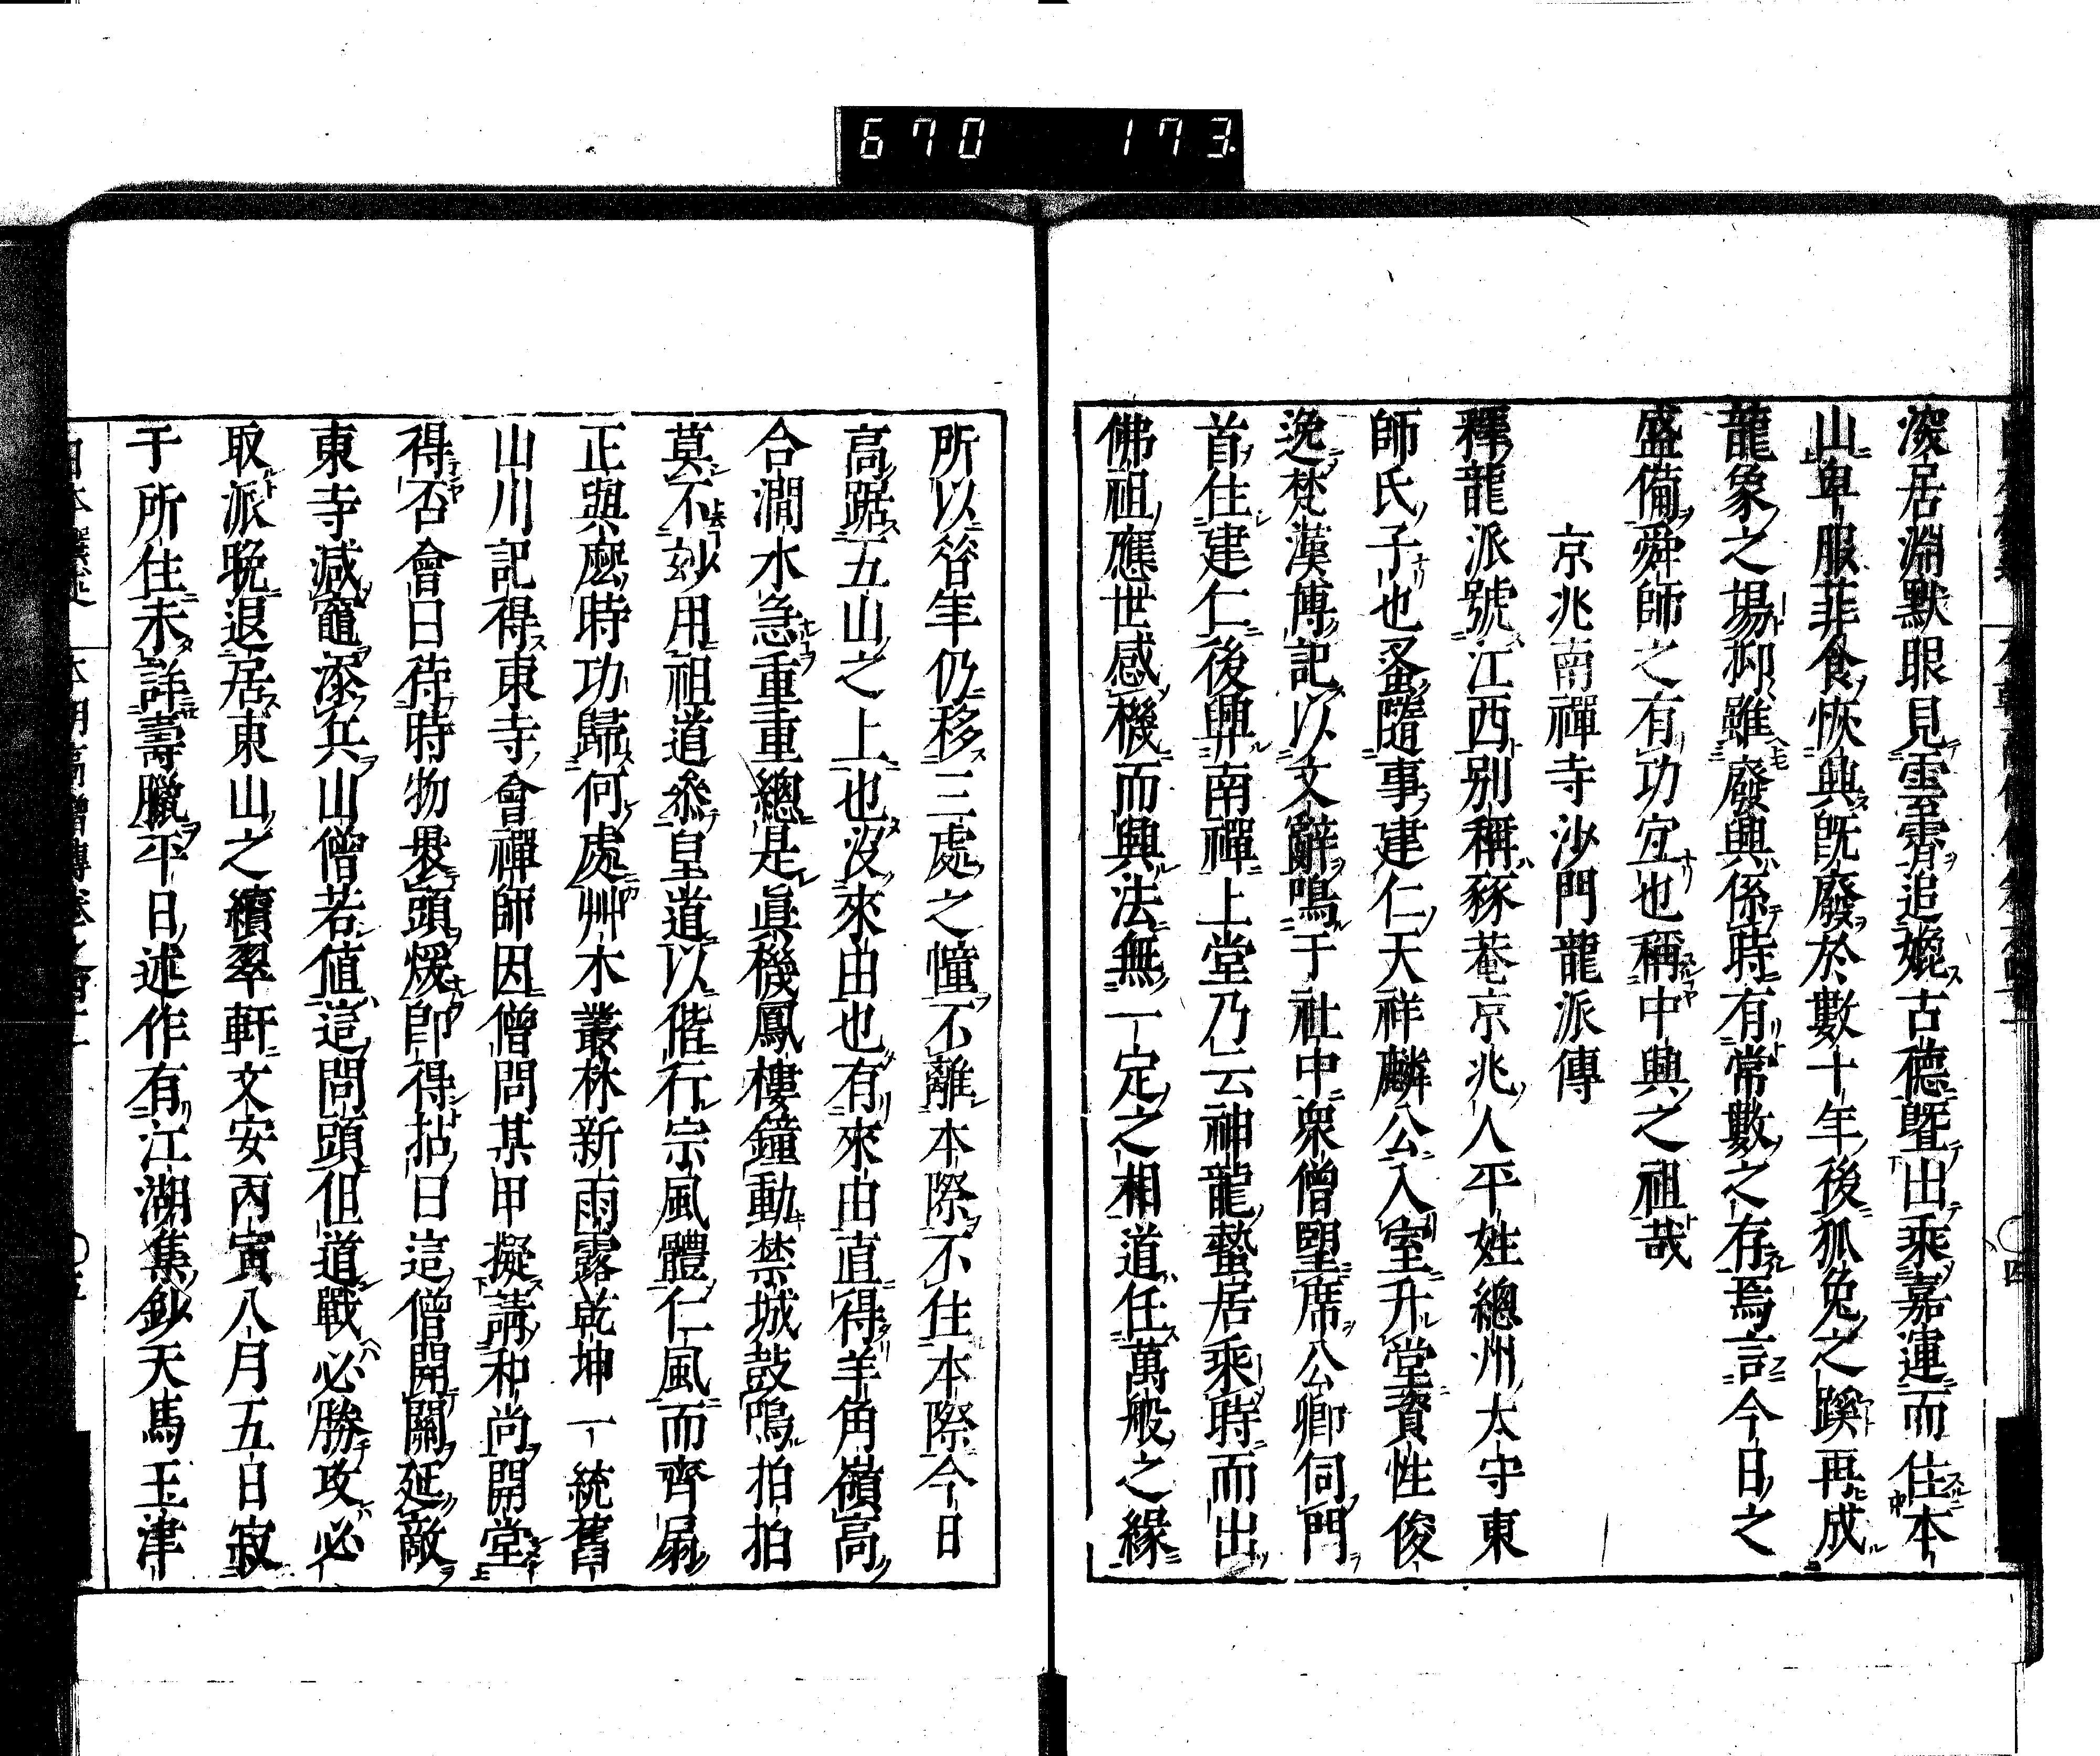 670 173
深居淵默眼見雪霽追媲古德曁出乘嘉運而住本
山卑服菲食恢興旣廢於數十年後狐兔之蹊再成
龍象之場抑雖廢興係時有常數之存焉言今日之
盛備舜師之有功宜也稱中興之祖哉
京兆南禪寺沙門龍派傳
釋龍派號江西別稱豩菴京兆人平姓總州太守東
師氏子也蚤隨事建仁天祥麟公入室升堂資性俊
逸梵漢博記以文辭鳴于社中衆僧望席公卿伺門
首住建仁後興南禪上堂乃云神龍蟄居乘時而出
佛祖應世感機而興法無一定之相道任萬般之緣
所以答年仍移三處之幢不離本際不住本際今日
高踞五山之上也沒來由也有來由直得羊角嶺高
合澗水急重重總是眞機鳳樓鐘動禁城鼓鳴拍拍
莫不妙用祖道叅皇道以偕行宗風體仁風而齊扇
正與麽時功歸何處艸木叢林新雨露乾坤一統舊
山川記得東寺會禪師因僧問某甲擬請和尚開堂
得否會曰待時物褁頭煖卽得拈曰這僧開關延敵
東寺減竈添兵山僧若値這問頭但道戰必勝攻必
取派晚退居東山之續翠軒文安丙寅八月五日寂
于所住未詳壽臘平日述作有江湖集鈔天馬玉津